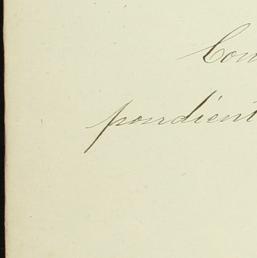 Con
pondient